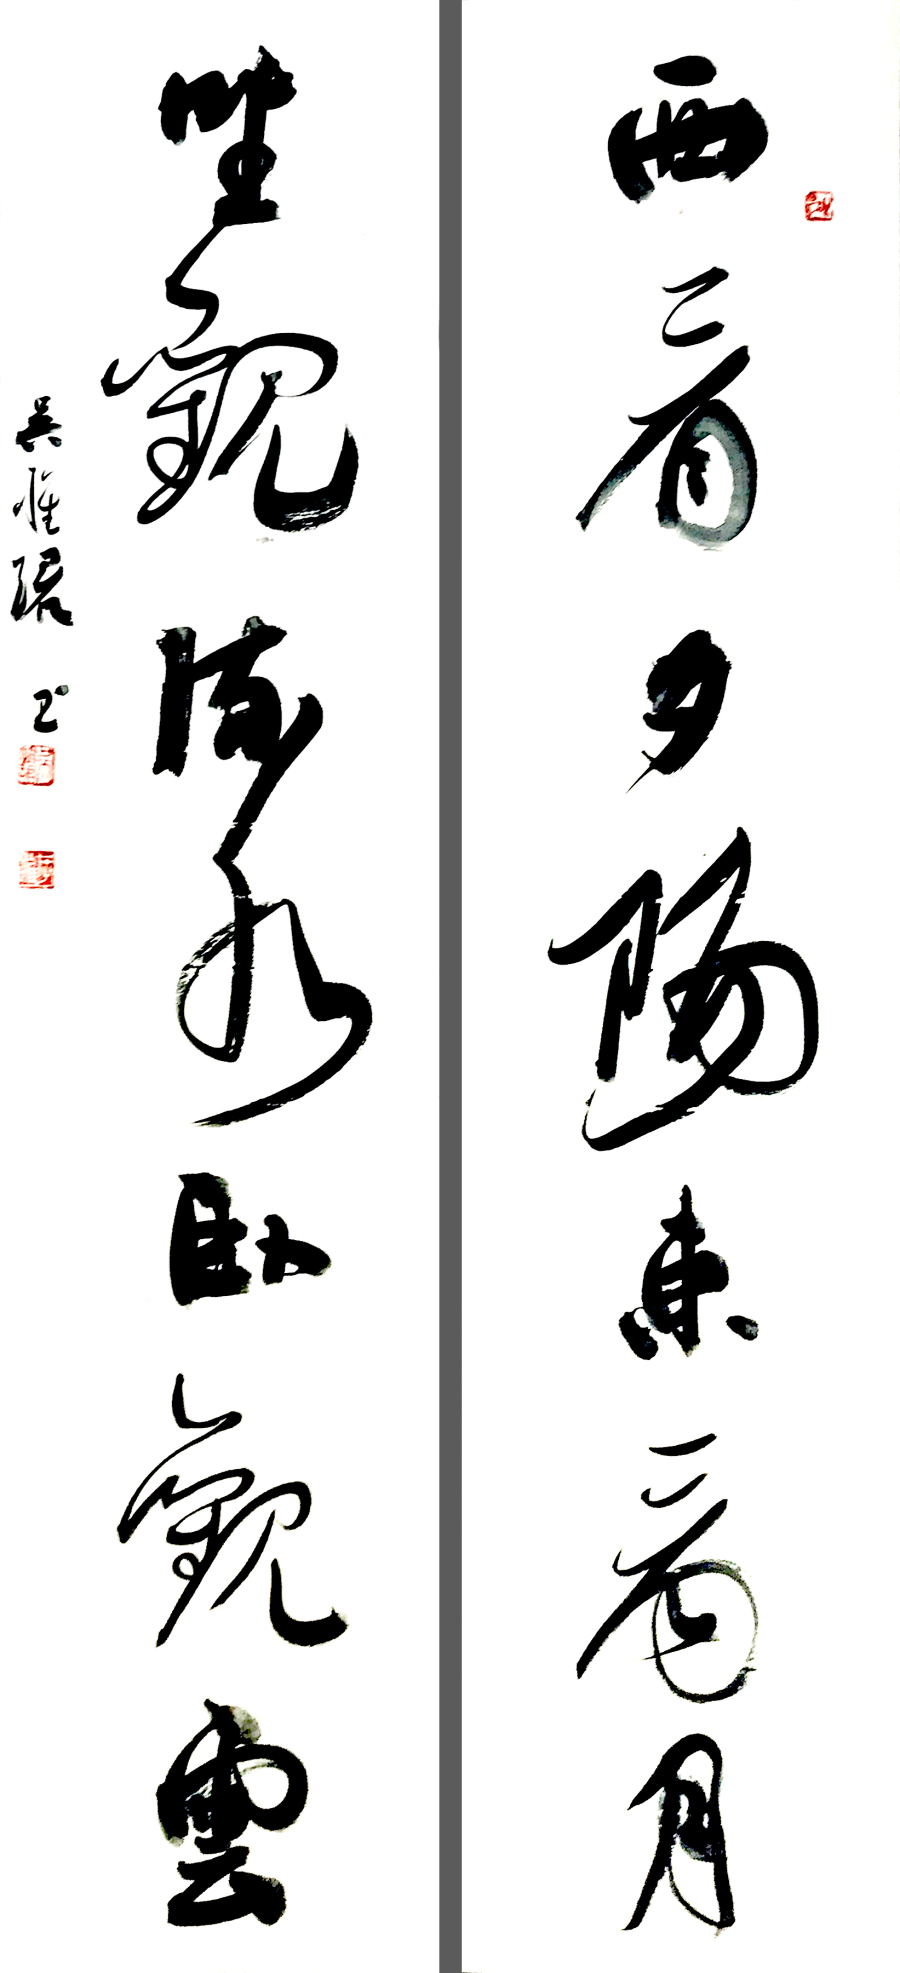 西看夕陽東看月
坐觀流水臥觀雲
吳惟珺 书